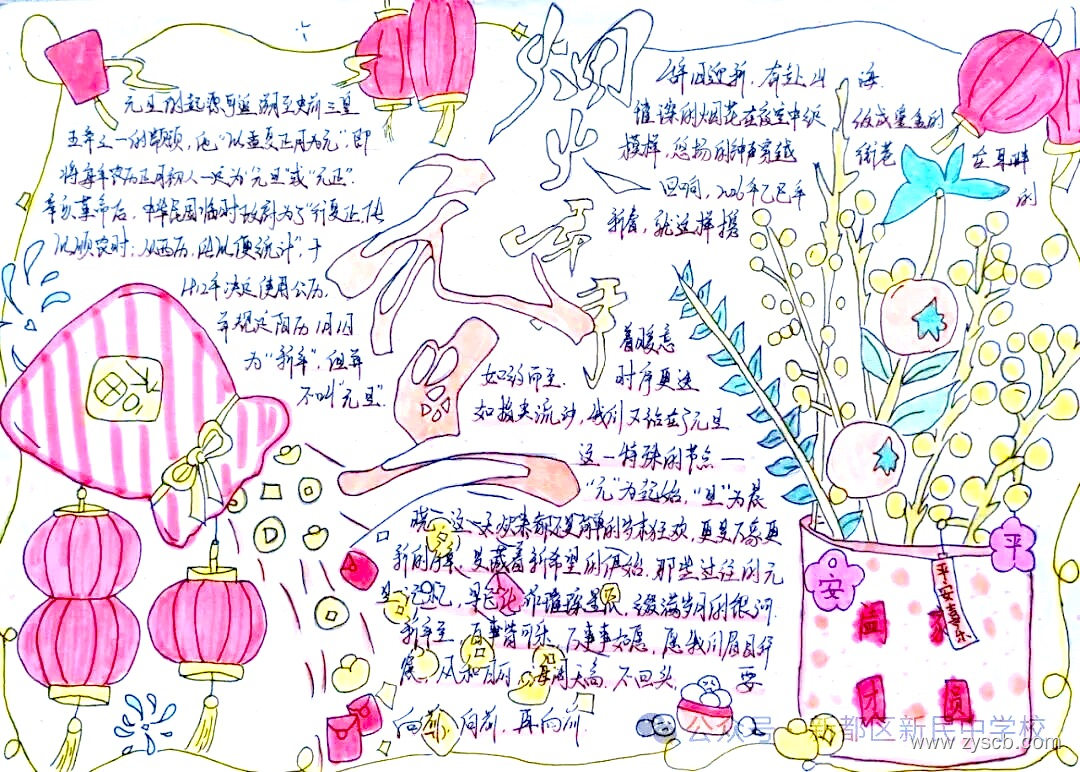 烟火
元旦
元旦的起源可追溯至史前三皇
五帝之一的颛顼，他"以孟夏正月为元"，即
将每年农历正月初一定为"元旦"或"元正".
辛亥革命后，中华民国临时政府为了"行夏正，
以顺农时；从西历，所以便统计"，于
1912年决定使用公历，
并规定阳历1月1日
为"新年"，但并
不叫"元旦".
辞旧迎新，奔赴山海.
璀璨的烟花在夜空中织成鎏金的
模样，悠扬的钟声穿越街巷在耳畔
回响，2026年乙巳年的
新春，就这样携
着暖意
如约而至. 时序更迭
如指尖流沙，我们又站在了元旦
这一特殊的节点一
"元"为起始，"旦"为晨
晓，这一天从来都不是简单的岁末狂欢，更是万象更
新的序章，是藏着新希望的开始. 那些过往的
新年至 百事皆可乐，万事事如愿，愿我们眉目舒
展，风和日丽 海阔天高 不回头 要
向前，向前，再向前.
平
安
平安喜乐
团
圆
公众号 新都区新民中学校
www.zyscb.com